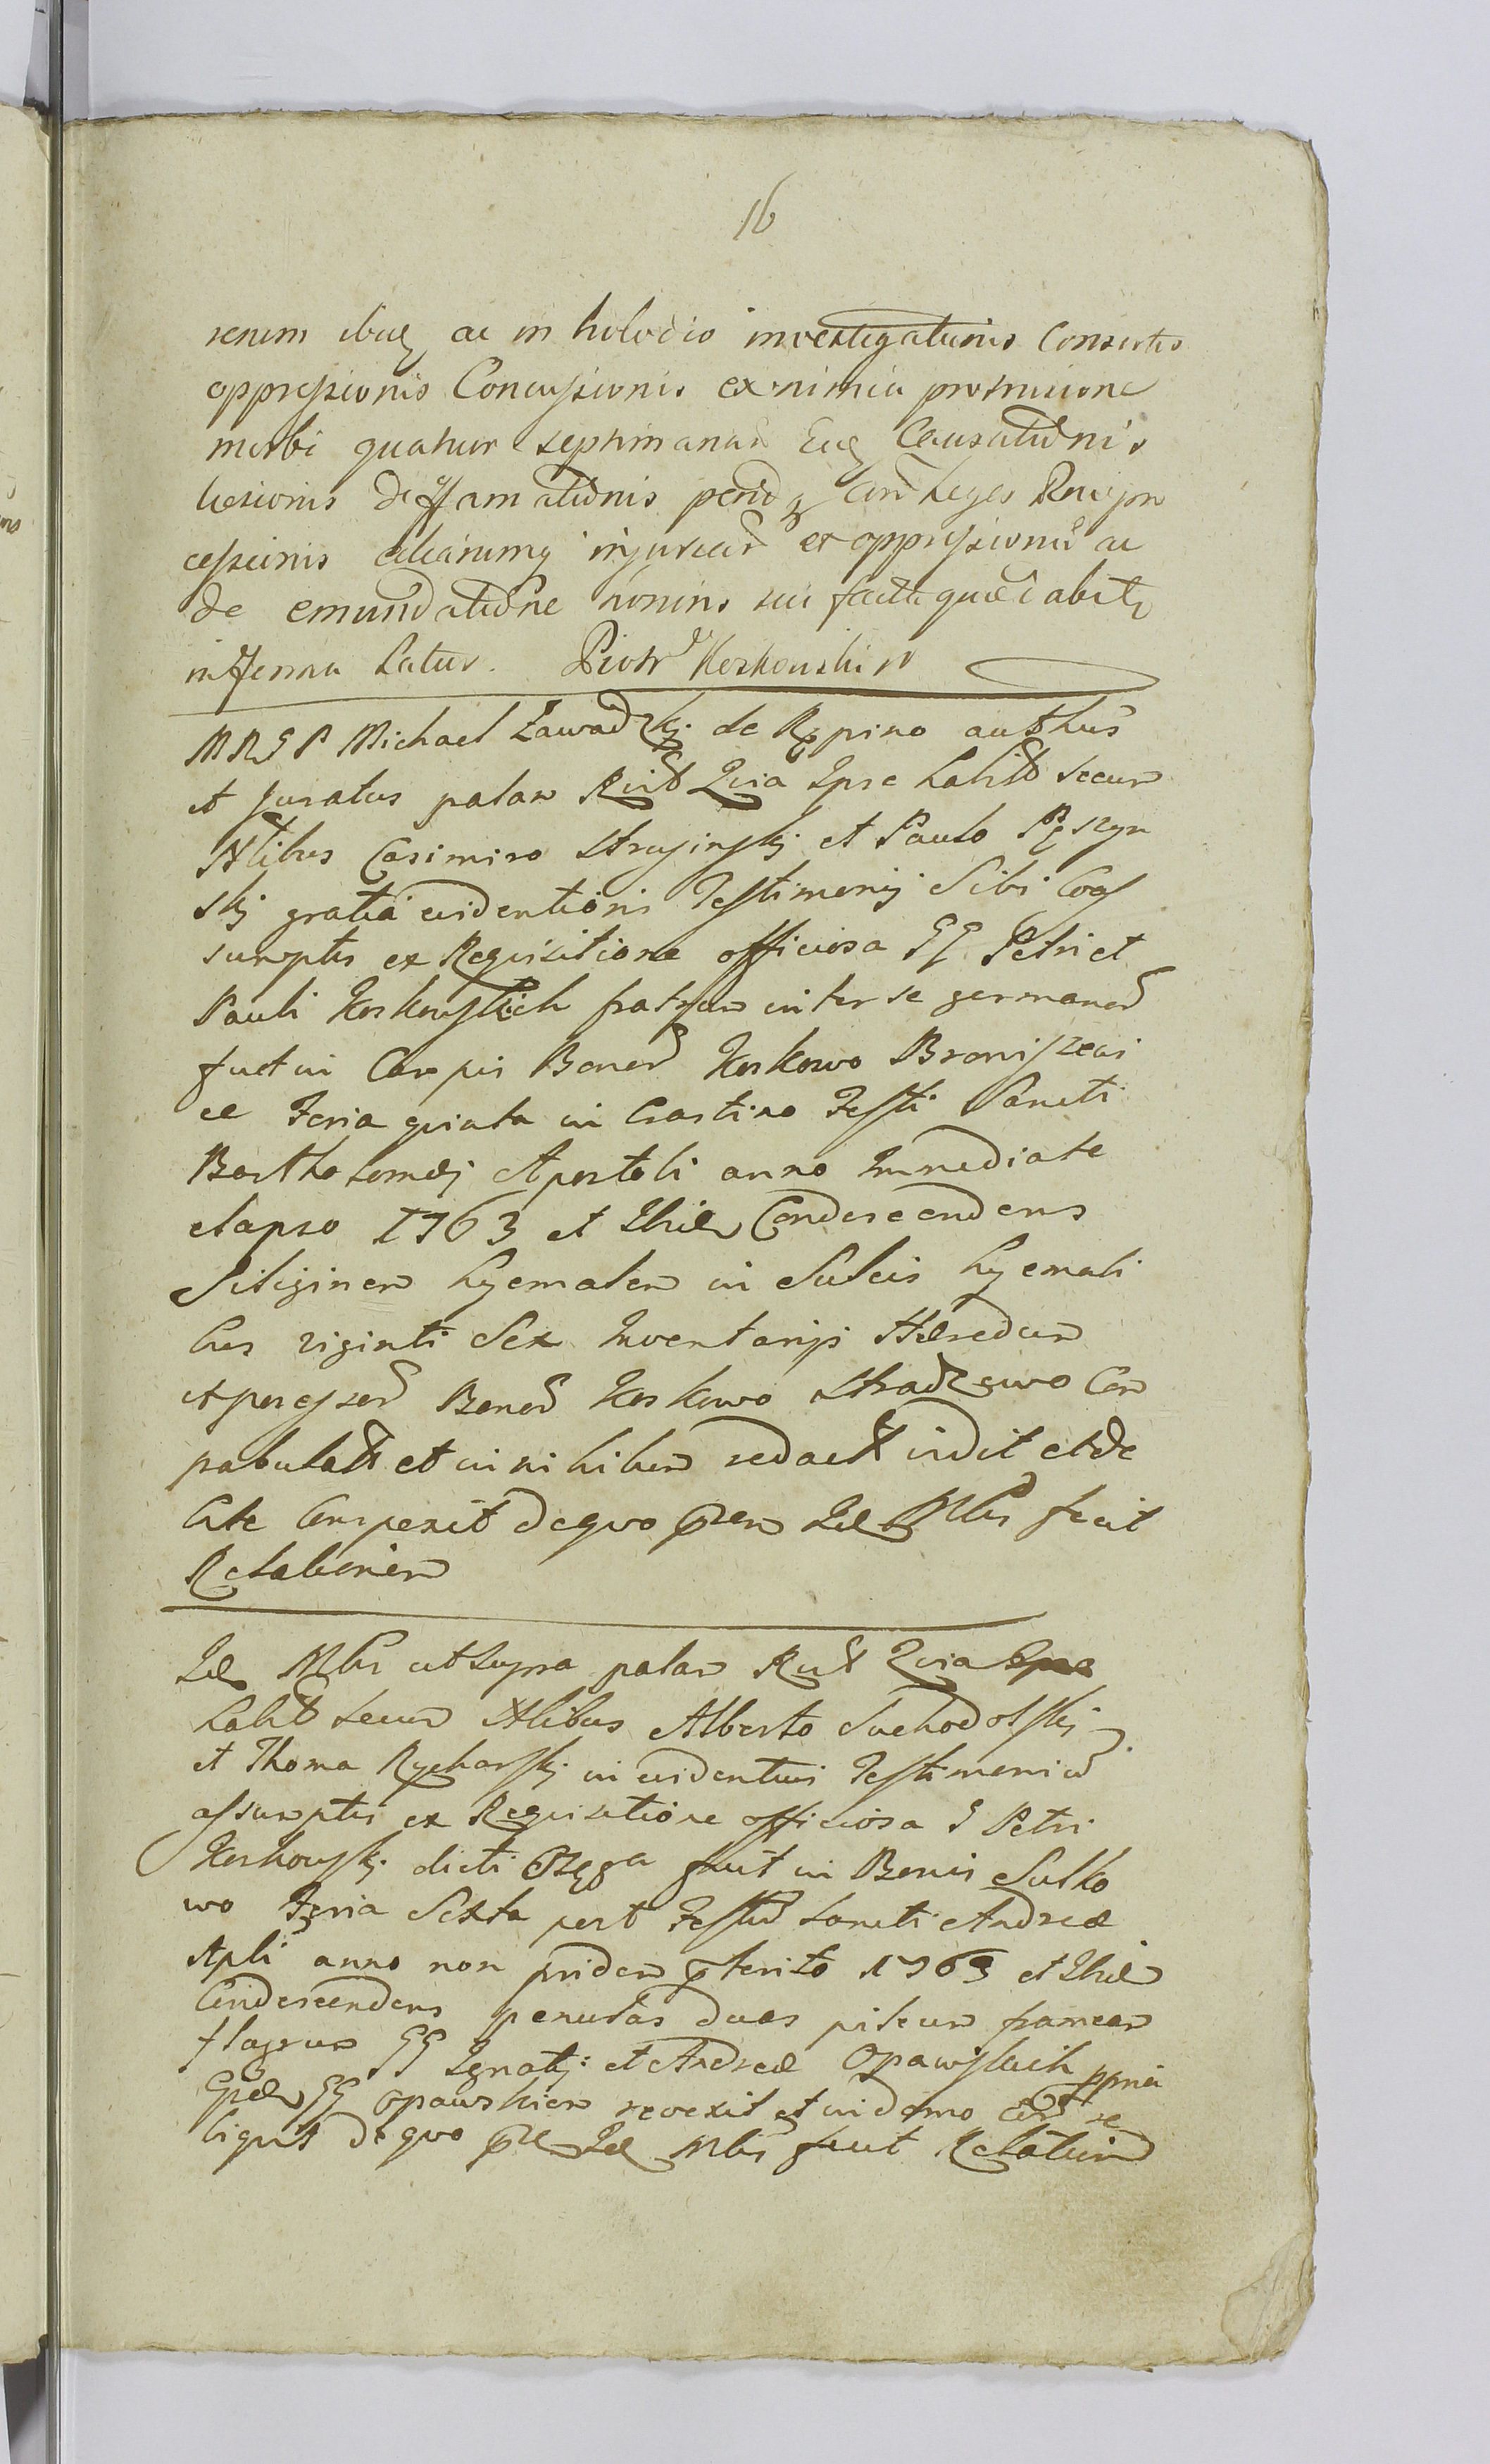 16
rerum ibidq ac in holodio investigationis Consortis
oppressionis Concussionis ex nimia protrusione
morbi quatuor septimanar̃ Eiq Causatiõnis
læsionis deffamatiõnis peridq cont̃ Leges Regni pro
cessionis aliarumq injuriar̃ et oppressionũ ac
de emundatiõne honoris sui facta quærĩ abitq
inferma Latius. Piotr Koskowski w
MRGP Michael Zawadzkj de Rypino authus
et Juratus palam Rūt Quia Ipse habit̃ secum
Nlibus Casimiro Strusinskj et Paulo Pęszyn
skj gratia evidentioris Testimonij Sibi Coas
sumptis ex Requisitione officiosa GG Petri et
Pauli Koskowskich fratrum inter se germanor̃
fuit in Campis Bonor̃ Koskowo Broniszewi
ce Feria quinta in Crastino Festi Sancti
Bartholomæj Apostoli anno Immediate
elapso 1763 et Ibid Condescendens
Siliginem hyemalem in Sulcis hyemali
bus viginti Sex Inventarijs Hæredum
et possessor̃ Bonor̃ Koskowo Stradzewo Con
pabulat̃ et in nihilum redact̃ vidit et de
bite Conspexit de quo p̃ñ Id Mlis fecit
Relationem
Id Mlis ut supra palam Rūt Quia
habit̃ secum Nlibus Alberto Suchodolskj
et Thoma Rycharskj in evidentius Testimoniũ
assumptis ex Requisitione officiosa G Petri
Koskowskj dicti fuit in Bonis Sulko
wo Feria Sexta post Festũ Sancti Andreæ
Apli anno non pridem p̃terito 1763 et Ibid
Condescendens penulas duas pileum frameam
flagrum GG Ignatij et Andreæ Opawskich
GG Opawskim revexit et in domo ppria
se
liquit de quo p̃ñ Id Mlis fecit Relationẽ